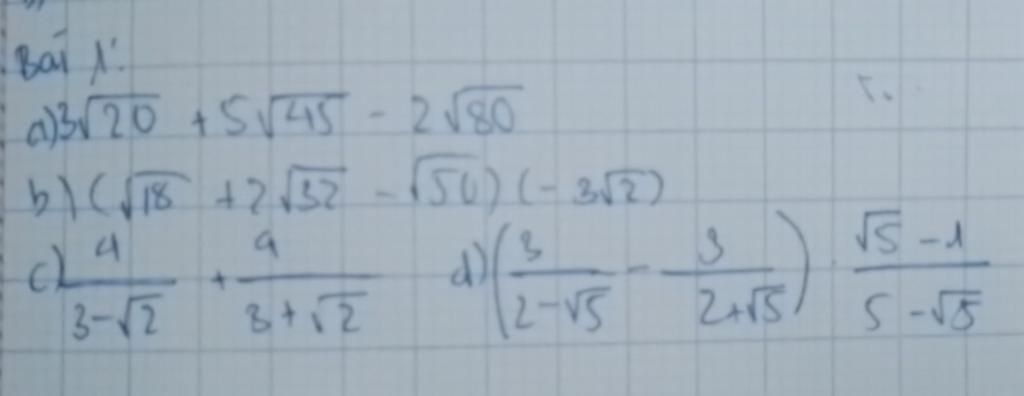 Bài 1:
a) 3√20 + 5√45 - 2√80
b) (√18 + 2√32 - √50) (-3√2)
c) 4/(3-√2) + 4/(3+√2) d) (3/(2-√5) - 3/(2+√5)) . (√5 - 1)/(5 - √5)